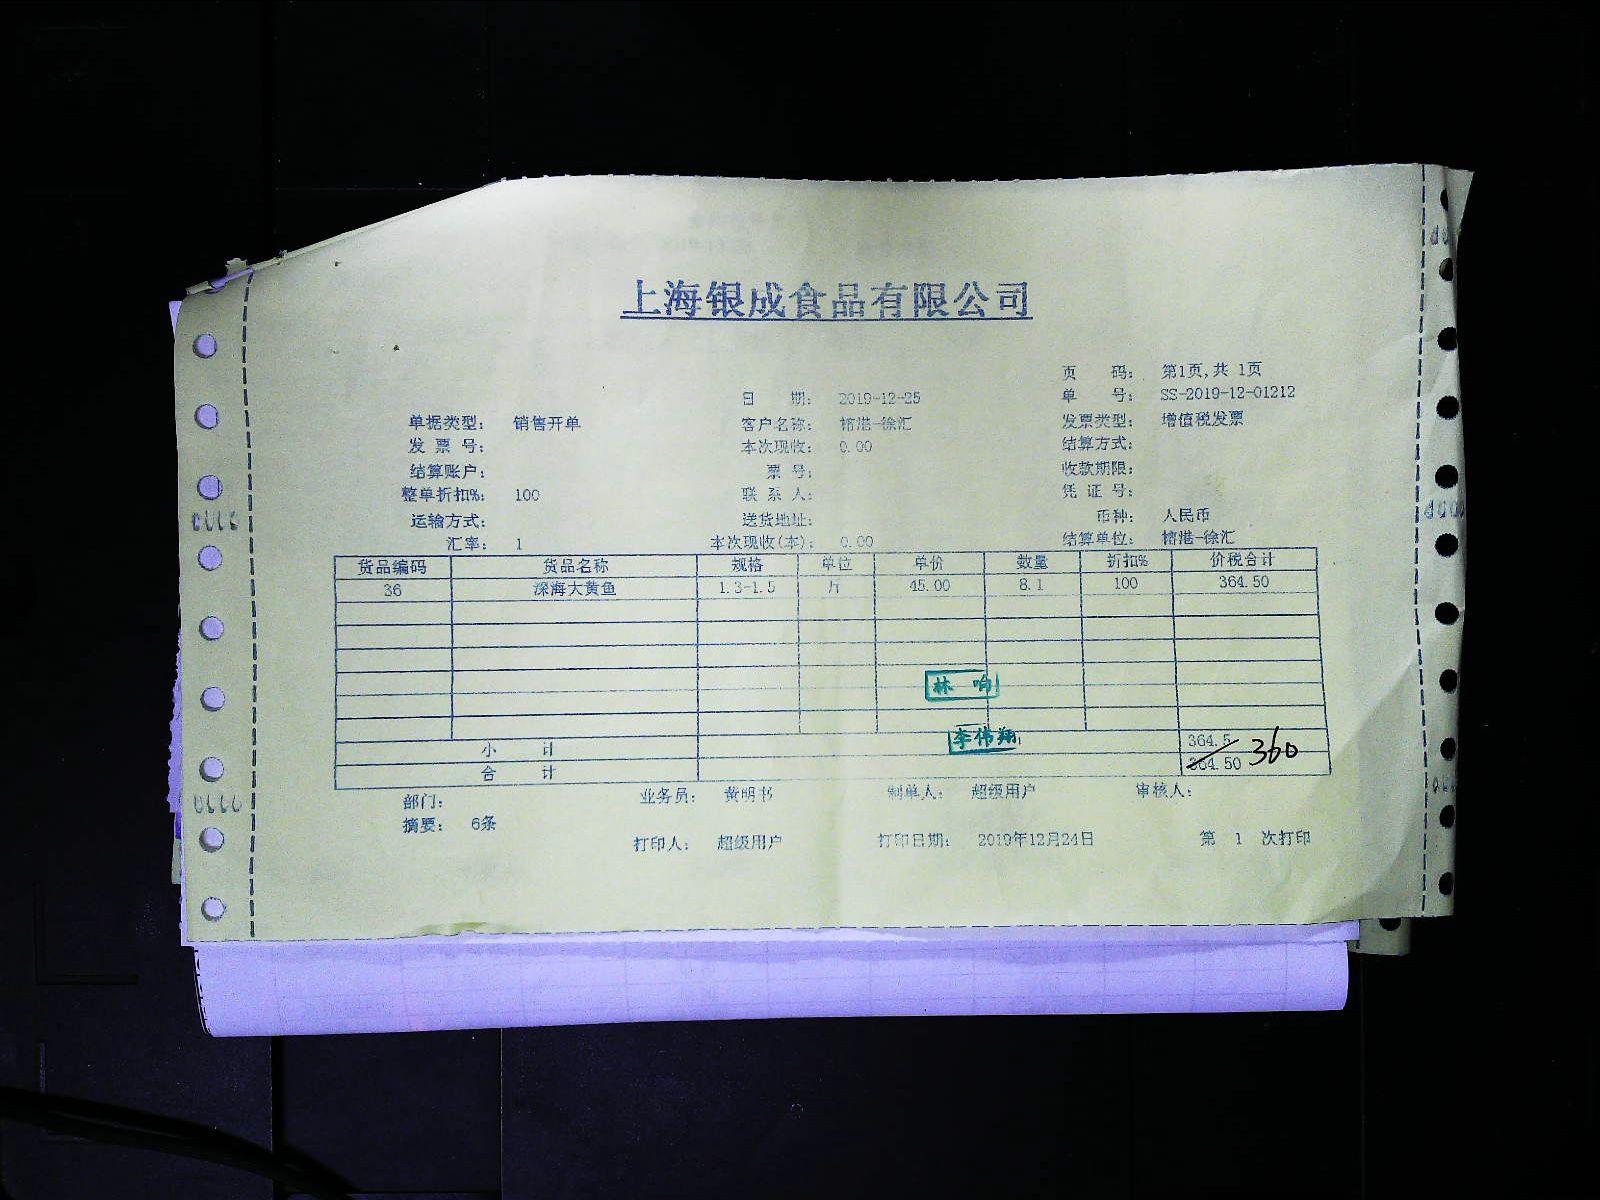 上海银成食品有限公司
页 码： 第1页,共 1页
日 期： 2019-12-25 单 号： SS-2019-12-01212
单据类型： 销售开单 客户名称： 榕港-徐汇 发票类型： 增值税发票
发 票 号： 本次现收： 0.00 结算方式：
结算账户： 票 号： 收款期限：
整单折扣%： 100 联 系 人： 凭 证 号：
运输方式： 送货地址： 币种： 人民币
汇率： 1 本次现收(本)： 0.00 结算单位： 榕港-徐汇
货品编码 货品名称 规格 单位 单价 数量 折扣% 价税合计
36 深海大黄鱼 1.3-1.5 斤 45.00 8.1 100 364.50
林 响
李伟翔
小 计 364.5
合 计 364.50 360
部门： 业务员： 黄明书 制单人： 超级用户 审核人：
摘要： 6条
打印人： 超级用户 打印日期： 2019年12月24日 第 1 次打印